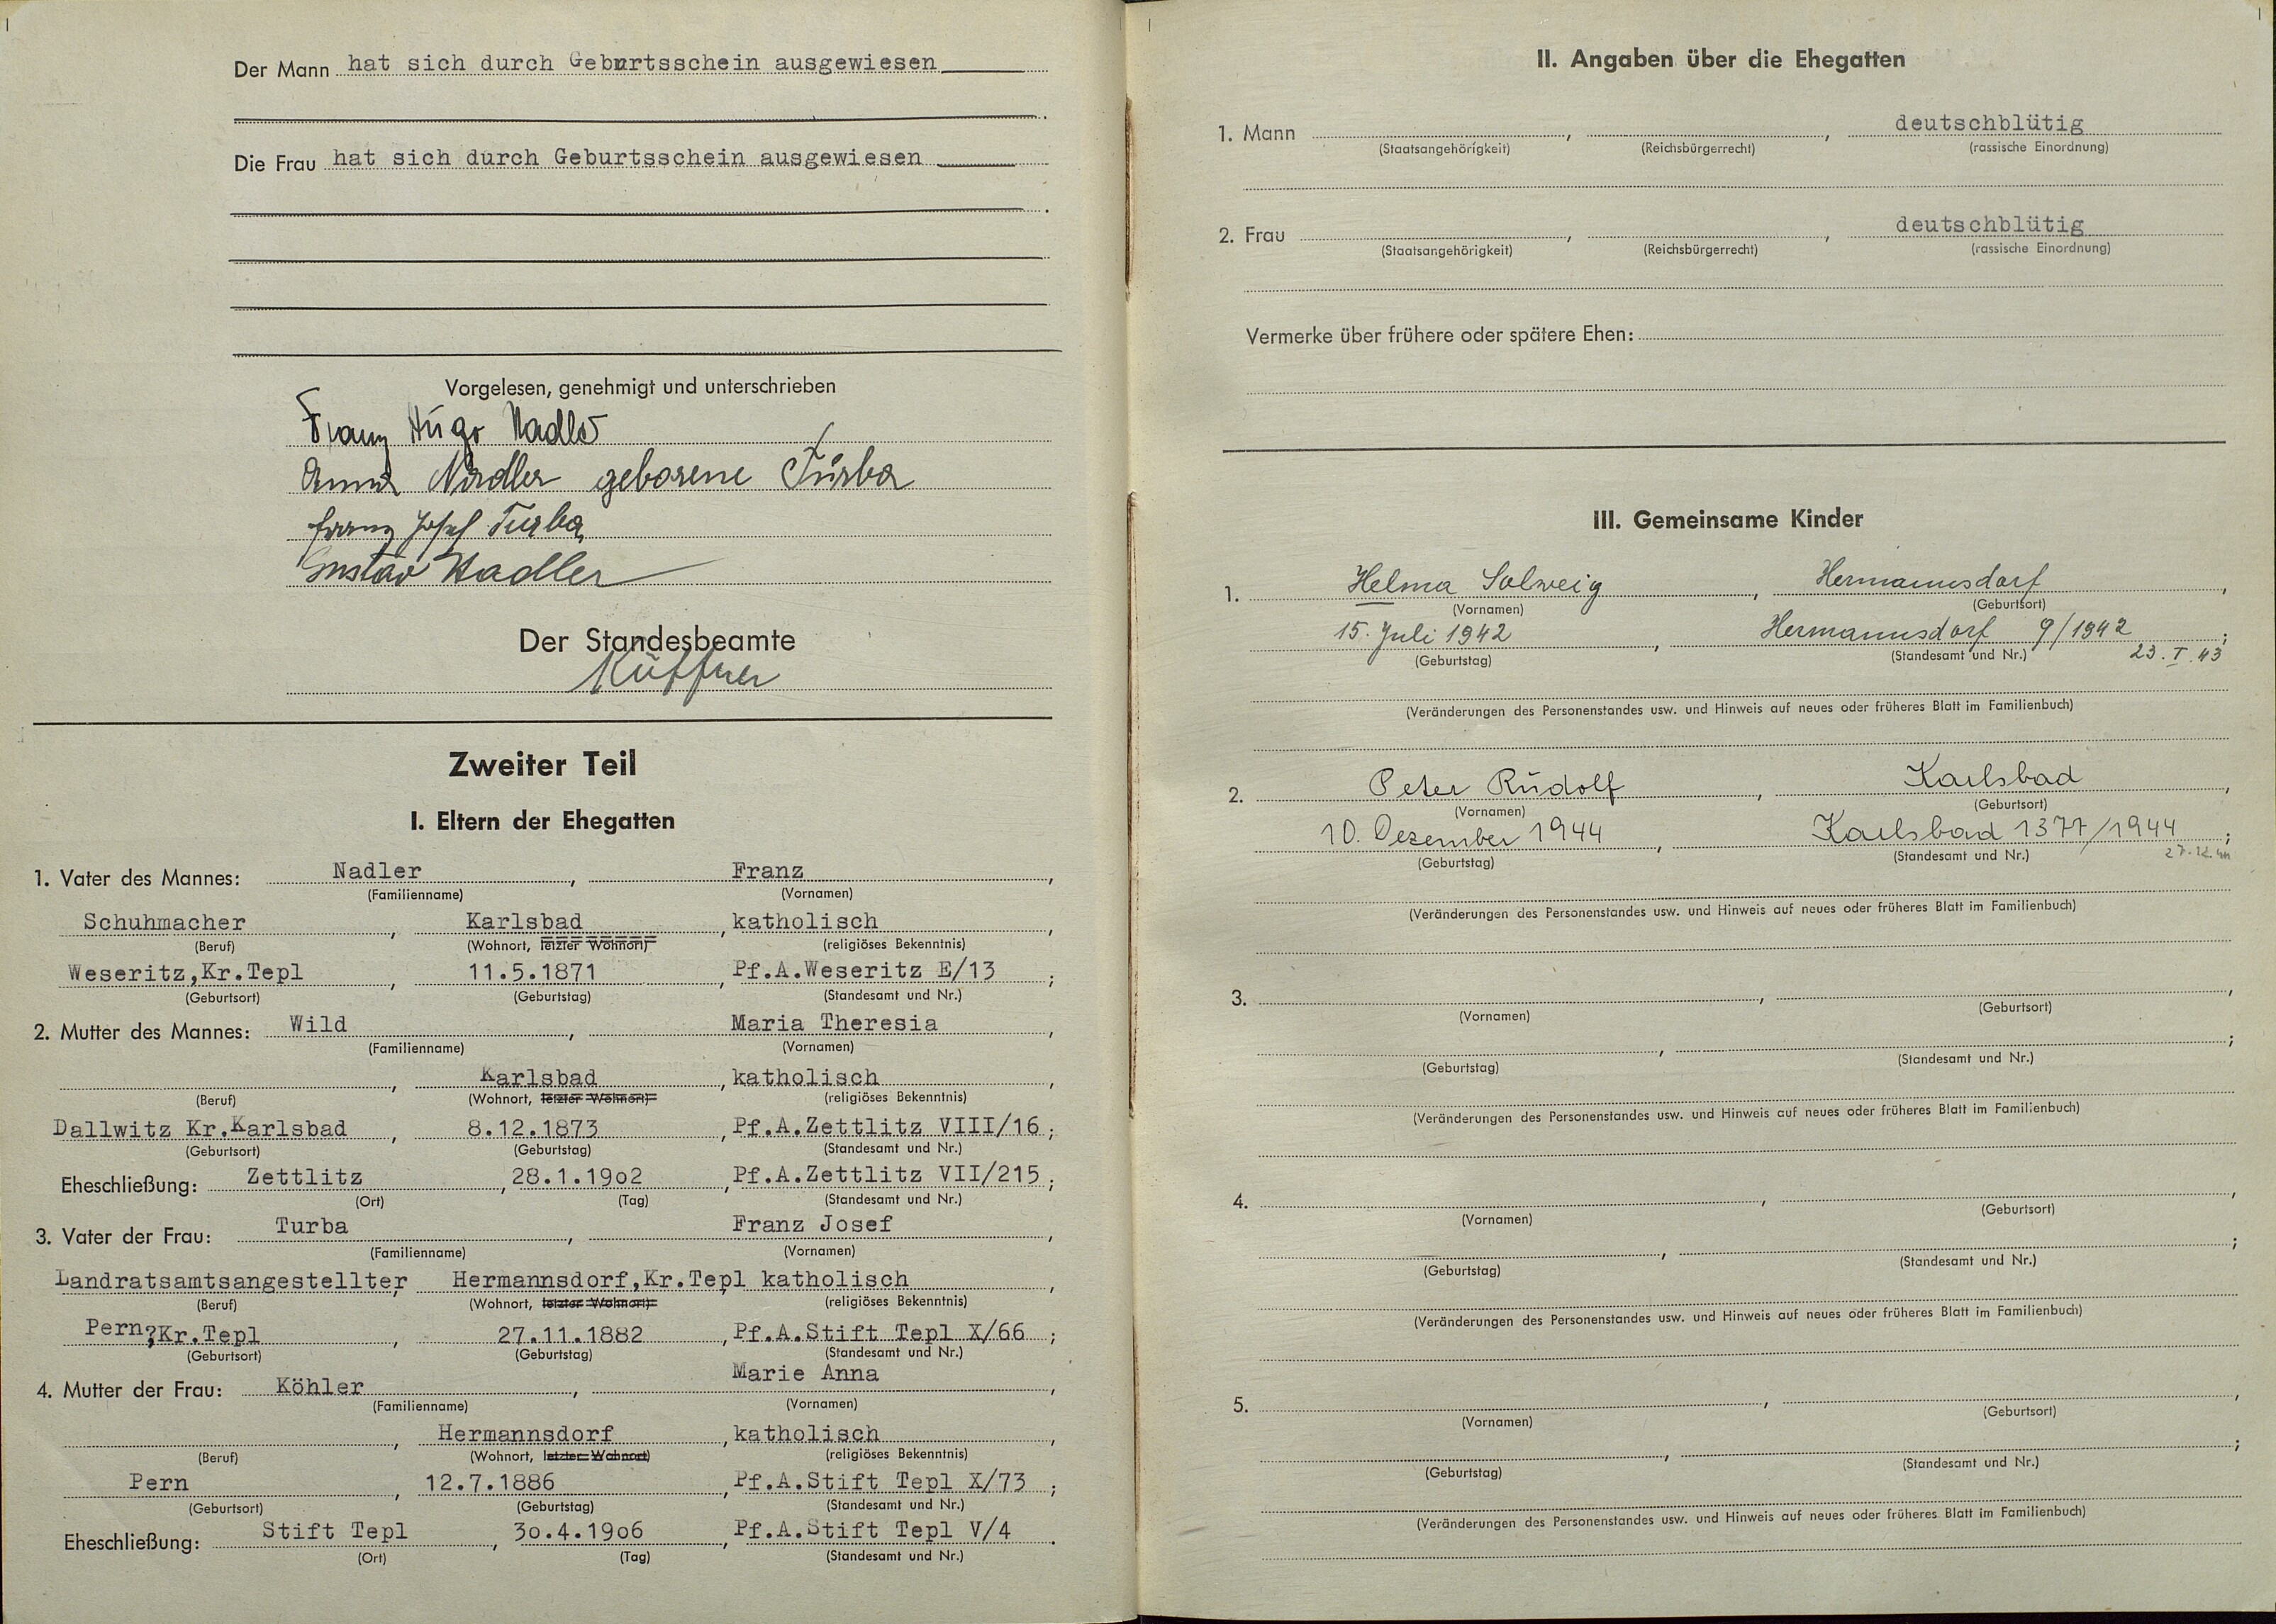 Der Mann hat sich durch Geburtsschein ausgewiesen
Die Frau hat sich durch Geburtsschein ausgewiesen
Vorgelesen, genehmigt und unterschrieben
Franz Hugo Nadler
Anna Nadler geborene Turba
Franz Josef Turba
Gustav Nadler
Der Standesbeamte
Küffner
Zweiter Teil
I. Eltern der Ehegatten
1. Vater des Mannes: Nadler, Franz,
(Familienname) (Vornamen)
Schuhmacher, Karlsbad, katholisch
(Beruf) (Wohnort, letzter Wohnort) (religiöses Bekenntnis)
Weseritz,Kr.Tepl, 11.5.1871, Pf.A.Weseritz E/13;
(Geburtsort) (Geburtstag) (Standesamt und Nr.)
2. Mutter des Mannes: Wild, Maria Theresia,
(Familienname) (Vornamen)
, Karlsbad, katholisch,
(Beruf) (Wohnort, letzter Wohnort) (religiöses Bekenntnis)
Dallwitz Kr.Karlsbad, 8.12.1873, Pf.A.Zettlitz VIII/16;
(Geburtsort) (Geburtstag) (Standesamt und Nr.)
Eheschließung: Zettlitz, 28.1.19o2, Pf.A.Zettlitz VII/215;
(Ort) (Tag) (Standesamt und Nr.)
3. Vater der Frau: Turba, Franz Josef,
(Familienname) (Vornamen)
Landratsamtsangestellter, Hermannsdorf,Kr.Tepl, katholisch,
(Beruf) (Wohnort, letzter Wohnort) (religiöses Bekenntnis)
Pern?Kr.Tepl, 27.11.1882, Pf.A.Stift Tepl X/66;
(Geburtsort) (Geburtstag) (Standesamt und Nr.)
4. Mutter der Frau: Köhler, Marie Anna,
(Familienname) (Vornamen)
, Hermannsdorf, katholisch,
(Beruf) (Wohnort, letzter Wohnort) (religiöses Bekenntnis)
Pern, 12.7.1886, Pf.A.Stift Tepl X/73;
(Geburtsort) (Geburtstag) (Standesamt und Nr.)
Eheschließung: Stift Tepl, 3o.4.19o6, Pf.A.Stift Tepl V/4.
(Ort) (Tag) (Standesamt und Nr.)
II. Angaben über die Ehegatten
1. Mann , , deutschblütig
(Staatsangehörigkeit) (Reichsbürgerrecht) (rassische Einordnung)
2. Frau , , deutschblütig
(Staatsangehörigkeit) (Reichsbürgerrecht) (rassische Einordnung)
Vermerke über frühere oder spätere Ehen:
III. Gemeinsame Kinder
1. Helma Solweig, Hermannsdorf,
(Vornamen) (Geburtsort)
15. Juli 1942, Hermannsdorf 9/1942;
(Geburtstag) (Standesamt und Nr.) 23.I.43
(Veränderungen des Personenstandes usw. und Hinweis auf neues oder früheres Blatt im Familienbuch)
2. Peter Rudolf, Karlsbad,
(Vornamen) (Geburtsort)
10. Dezember 1944, Karlsbad 1377/1944;
(Geburtstag) (Standesamt und Nr.) 27.12.44
(Veränderungen des Personenstandes usw. und Hinweis auf neues oder früheres Blatt im Familienbuch)
3. , ,
(Vornamen) (Geburtsort)
, ;
(Geburtstag) (Standesamt und Nr.)
(Veränderungen des Personenstandes usw. und Hinweis auf neues oder früheres Blatt im Familienbuch)
4. , ,
(Vornamen) (Geburtsort)
, ;
(Geburtstag) (Standesamt und Nr.)
(Veränderungen des Personenstandes usw. und Hinweis auf neues oder früheres Blatt im Familienbuch)
5. , ,
(Vornamen) (Geburtsort)
, ;
(Geburtstag) (Standesamt und Nr.)
(Veränderungen des Personenstandes usw. und Hinweis auf neues oder früheres Blatt im Familienbuch)